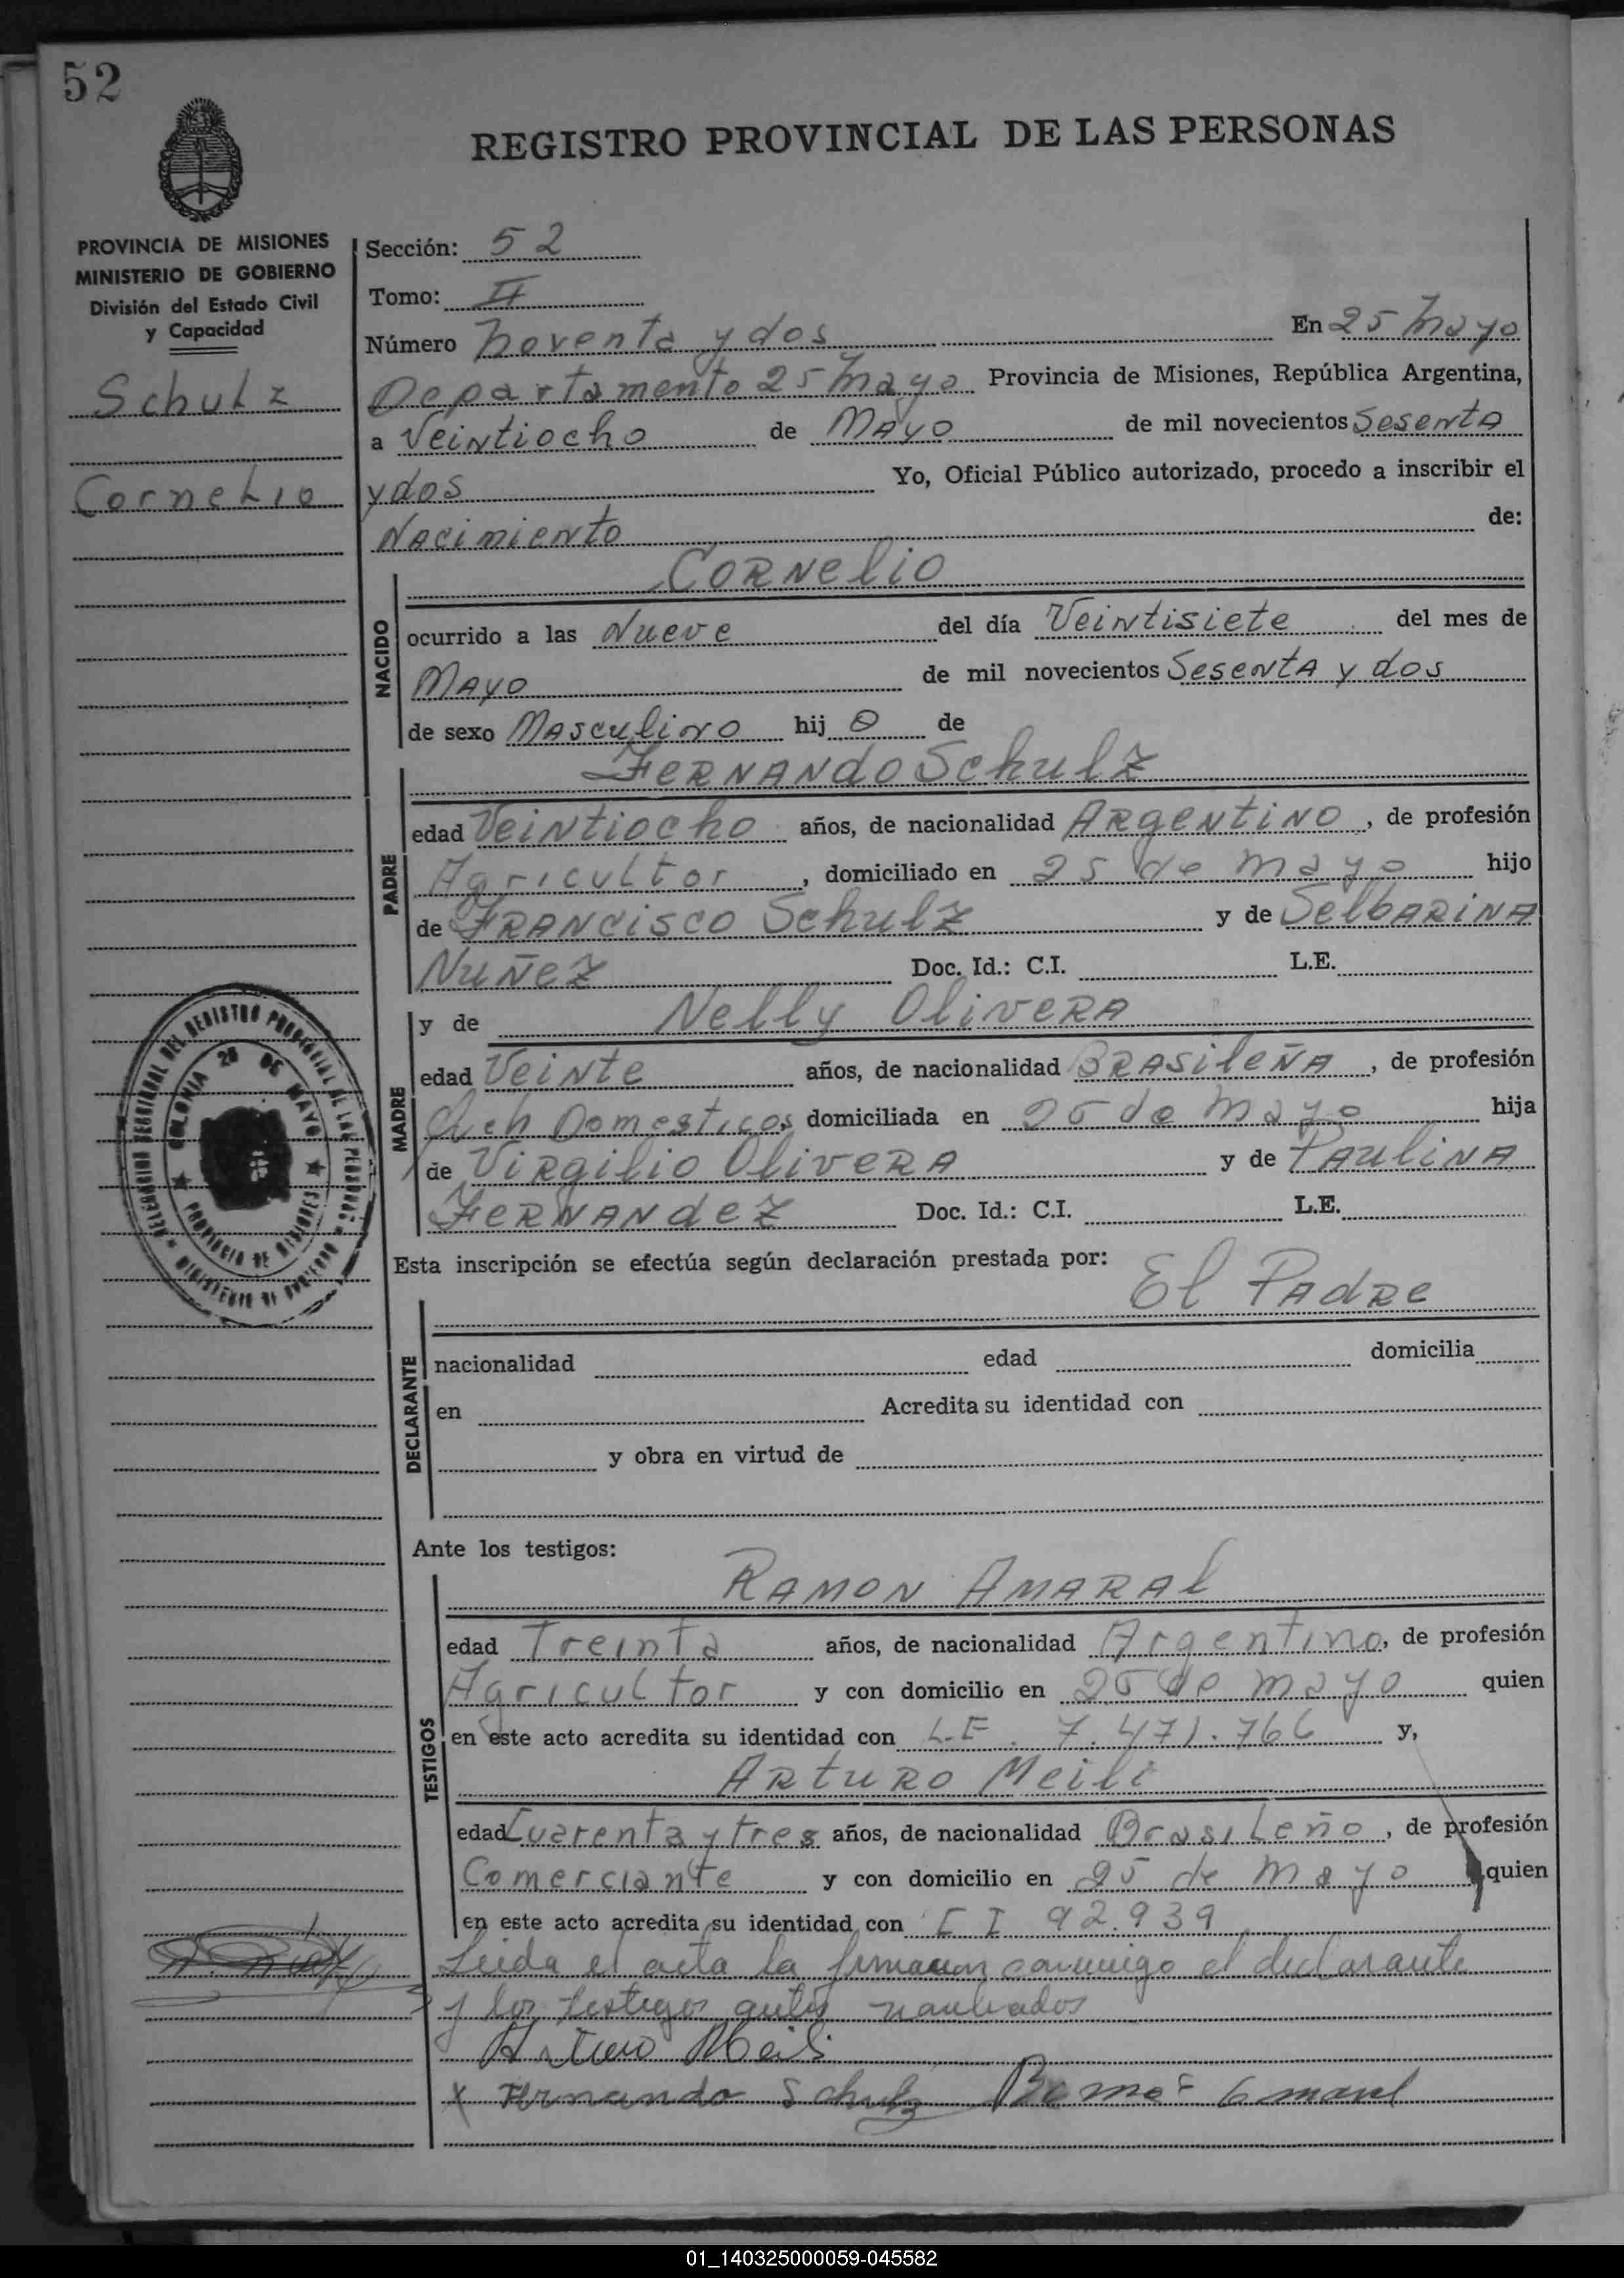 52
REGISTRO PROVINCIAL DE LAS PERSONAS
PROVINCIA DE MISIONES
MINISTERIO DE GOBIERNO
División del Estado Civil
y Capacidad
Schulz
Cornelio
Sección: 52
Tomo: II
Número Noventa y dos En 25 Mayo
Departamento 25 Mayo Provincia de Misiones, República Argentina,
a Veintiocho de Mayo de mil novecientos Sesenta
y dos Yo, Oficial Público autorizado, procedo a inscribir el
Nacimiento de:
NACIDO
Cornelio
ocurrido a las Nueve del día Veintisiete del mes de
Mayo de mil novecientos Sesenta y dos
de sexo Masculino hij o de
PADRE
Fernando Schulz
edad Veintiocho años, de nacionalidad Argentino, de profesión
Agricultor, domiciliado en 25 de mayo hijo
de Francisco Schulz y de Selbarina
Nuñez Doc. Id.: C.I. L.E.
MADRE
y de Nelly Olivera
edad Veinte años, de nacionalidad Brasileña, de profesión
Domesticos domiciliada en 25 de mayo hija
de Virgilio Olivera y de Paulina
Fernandez Doc. Id.: C.I. L.E.
DELEGACION REGIONAL DEL REGISTRO PROVINCIAL DE LAS PERSONAS
MINISTERIO DE GOBIERNO
COLONIA 25 DE MAYO
PROVINCIA DE MISIONES
Esta inscripción se efectúa según declaración prestada por:
El Padre
DECLARANTE
nacionalidad edad domicilia
en Acredita su identidad con
y obra en virtud de
Ante los testigos:
TESTIGOS
Ramon Amaral
edad Treinta años, de nacionalidad Argentino, de profesión
Agricultor y con domicilio en 25 de mayo quien
en este acto acredita su identidad con L.E. 7.471.766 y,
Arturo Meili
edad Cuarenta y tres años, de nacionalidad Brasileño, de profesión
Comerciante y con domicilio en 25 de mayo quien
en este acto acredita su identidad con C I 92.939
Leida el acta la firmaron conmigo el declarante
y los testigos antes nombrados
Arturo Meili
x Fernando Schulz Ramon Amaral
01_140325000059-045582